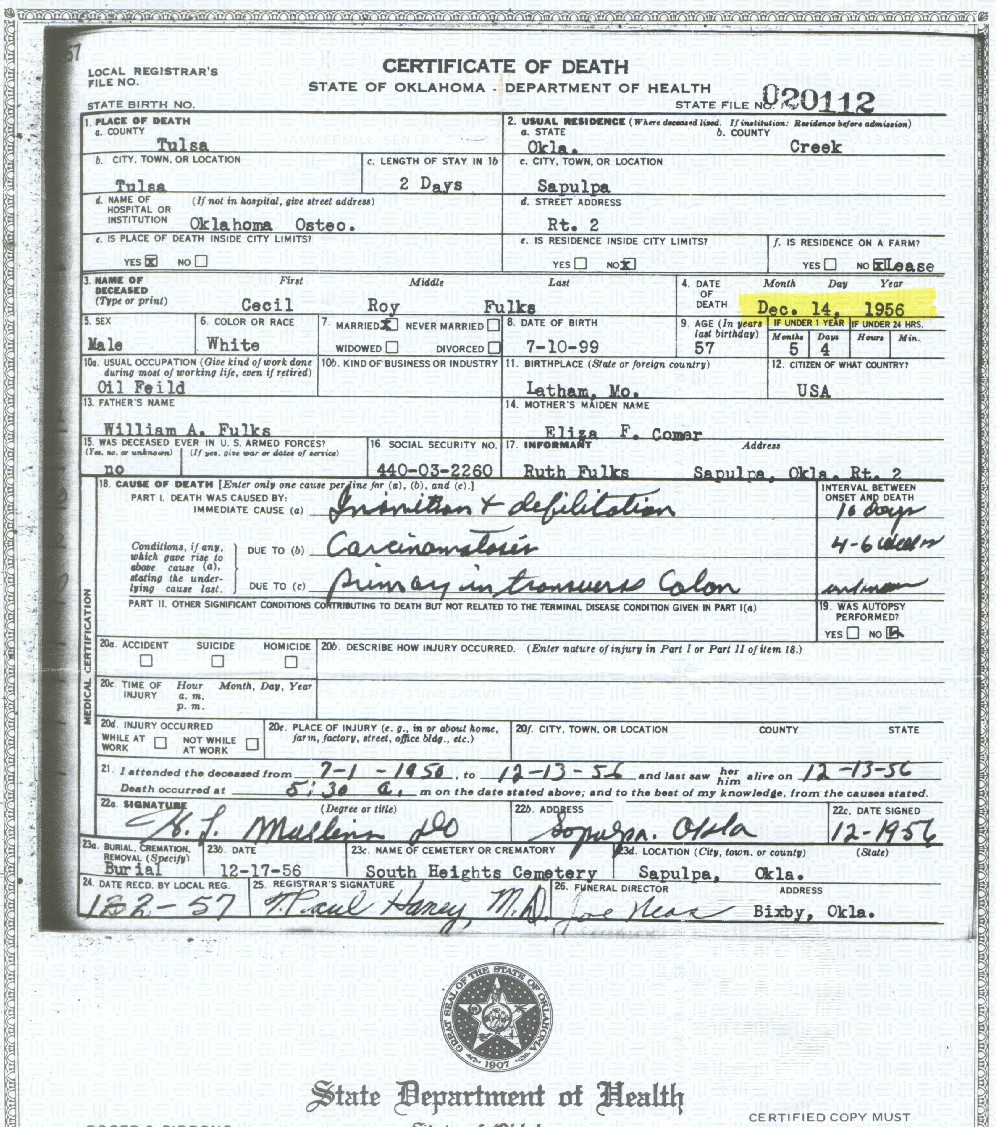 57
CERTIFICATE OF DEATH
LOCAL REGISTRAR'S FILE NO.
STATE OF OKLAHOMA - DEPARTMENT OF HEALTH
STATE BIRTH NO.
STATE FILE NO. 020112
1. PLACE OF DEATH
a. COUNTY
Tulsa
2. USUAL RESIDENCE (Where deceased lived. If institution: Residence before admission)
a. STATE b. COUNTY
Okla. Creek
b. CITY, TOWN, OR LOCATION
Tulsa
c. LENGTH OF STAY IN 1b
2 Days
c. CITY, TOWN, OR LOCATION
Sapulpa
d. NAME OF HOSPITAL OR INSTITUTION (If not in hospital, give street address)
Oklahoma Osteo.
d. STREET ADDRESS
Rt. 2
e. IS PLACE OF DEATH INSIDE CITY LIMITS?
YES X NO
e. IS RESIDENCE INSIDE CITY LIMITS?
YES NO X
f. IS RESIDENCE ON A FARM?
YES NO X Lease
3. NAME OF DECEASED (Type or print)
First Middle Last
Cecil Roy Fulks
4. DATE OF DEATH
Month Day Year
Dec. 14, 1956
5. SEX
Male
6. COLOR OR RACE
White
7. MARRIED X NEVER MARRIED
WIDOWED DIVORCED
8. DATE OF BIRTH
7-10-99
9. AGE (In years last birthday)
57
IF UNDER 1 YEAR
Months Days
5 4
IF UNDER 24 HRS.
Hours Min.
10a. USUAL OCCUPATION (Give kind of work done during most of working life, even if retired)
Oil Feild
10b. KIND OF BUSINESS OR INDUSTRY
11. BIRTHPLACE (State or foreign country)
Latham, Mo.
12. CITIZEN OF WHAT COUNTRY?
USA
13. FATHER'S NAME
William A. Fulks
14. MOTHER'S MAIDEN NAME
Eliza F. Comer
15. WAS DECEASED EVER IN U. S. ARMED FORCES?
(Yes, no, or unknown) (If yes, give war or dates of service)
no
16. SOCIAL SECURITY NO.
440-03-2260
17. INFORMANT Address
Ruth Fulks Sapulpa, Okla. Rt. 2
MEDICAL CERTIFICATION
18. CAUSE OF DEATH [Enter only one cause per line for (a), (b), and (c).]
INTERVAL BETWEEN ONSET AND DEATH
PART I. DEATH WAS CAUSED BY:
IMMEDIATE CAUSE (a) Inanition & debilitation 10 days
Conditions, if any, which gave rise to above cause (a), stating the underlying cause last.
DUE TO (b) Carcinomatosis 4-6 weeks
DUE TO (c) primary in transverse Colon unknown
PART II. OTHER SIGNIFICANT CONDITIONS CONTRIBUTING TO DEATH BUT NOT RELATED TO THE TERMINAL DISEASE CONDITION GIVEN IN PART I(a)
19. WAS AUTOPSY PERFORMED?
YES NO X
20a. ACCIDENT SUICIDE HOMICIDE
20b. DESCRIBE HOW INJURY OCCURRED. (Enter nature of injury in Part I or Part II of item 18.)
20c. TIME OF INJURY Hour Month, Day, Year
a. m.
p. m.
20d. INJURY OCCURRED
WHILE AT WORK NOT WHILE AT WORK
20e. PLACE OF INJURY (e. g., in or about home, farm, factory, street, office bldg., etc.)
20f. CITY, TOWN, OR LOCATION COUNTY STATE
21. I attended the deceased from 7-1-1950, to 12-13-56 and last saw her him alive on 12-13-56
Death occurred at 5:30 a. m on the date stated above; and to the best of my knowledge, from the causes stated.
22a. SIGNATURE (Degree or title)
DO
22b. ADDRESS
Sapulpa. Okla
22c. DATE SIGNED
12-1956
23a. BURIAL, CREMATION, REMOVAL (Specify)
Burial
23b. DATE
12-17-56
23c. NAME OF CEMETERY OR CREMATORY
South Heights Cemetery
23d. LOCATION (City, town, or county) (State)
Sapulpa, Okla.
24. DATE RECD. BY LOCAL REG.
25. REGISTRAR'S SIGNATURE
T. Paul Haney, M.D.
26. FUNERAL DIRECTOR ADDRESS
Joe Bixby, Okla.
GREAT SEAL OF THE STATE OF OKLAHOMA
1907
State Department of Health
CERTIFIED COPY MUST